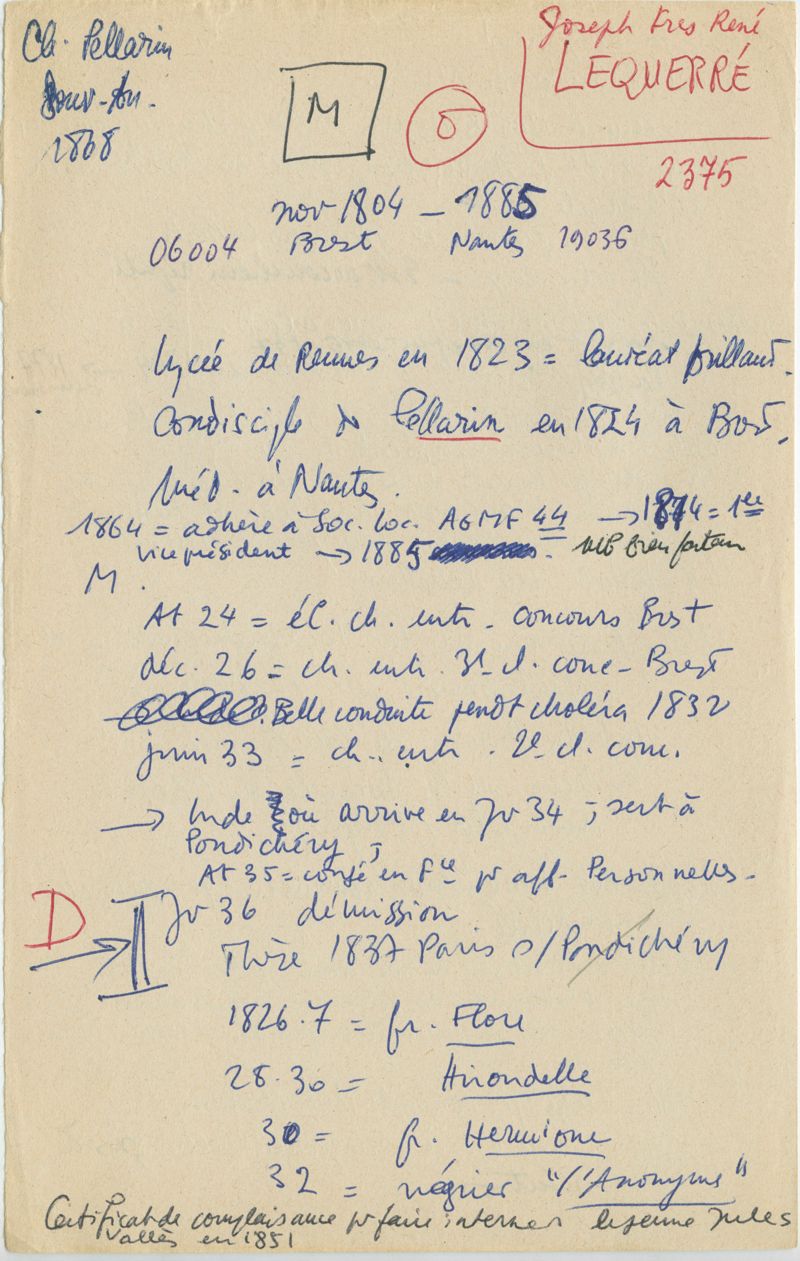 Ch. Pellarin
Souv-An.
1868
M
Joseph Fres René
LEQUERRÉ
2375
nov 1804 – 1885
06004 Brest Nantes 19036
Lycée de Rennes en 1823 = lauréat brillant.
Condisciple de Pellarin en 1824 à Brest.
Méd. à Nantes.
1864 = adhère à Soc. loc. AGMF 44 → 1874 = 1er
Vice président → 1885. bienfaiteur
M.
At 24 = él. ch. entr. concours Brest
déc. 26 = ch. entr. 3e cl. conc- Brest
Belle conduite pendt choléra 1832
juin 33 = ch. entr. 2e cl. conc.
→ Inde où arrive en Jr 34 ; sert à
Pondichéry ;
At 35 = congé en Fce pr aff- Personnelles-
D → Jr 36 démission
Thèse 1837 Paris s/Pondichéry
1826.7 = fr. Flore
28.30 = Hirondelle
30 = fr. Hermione
32 = négrier "l'Anonyme"
Certificat de complaisance pr faire interner le jeune Jules
Vallès en 1851